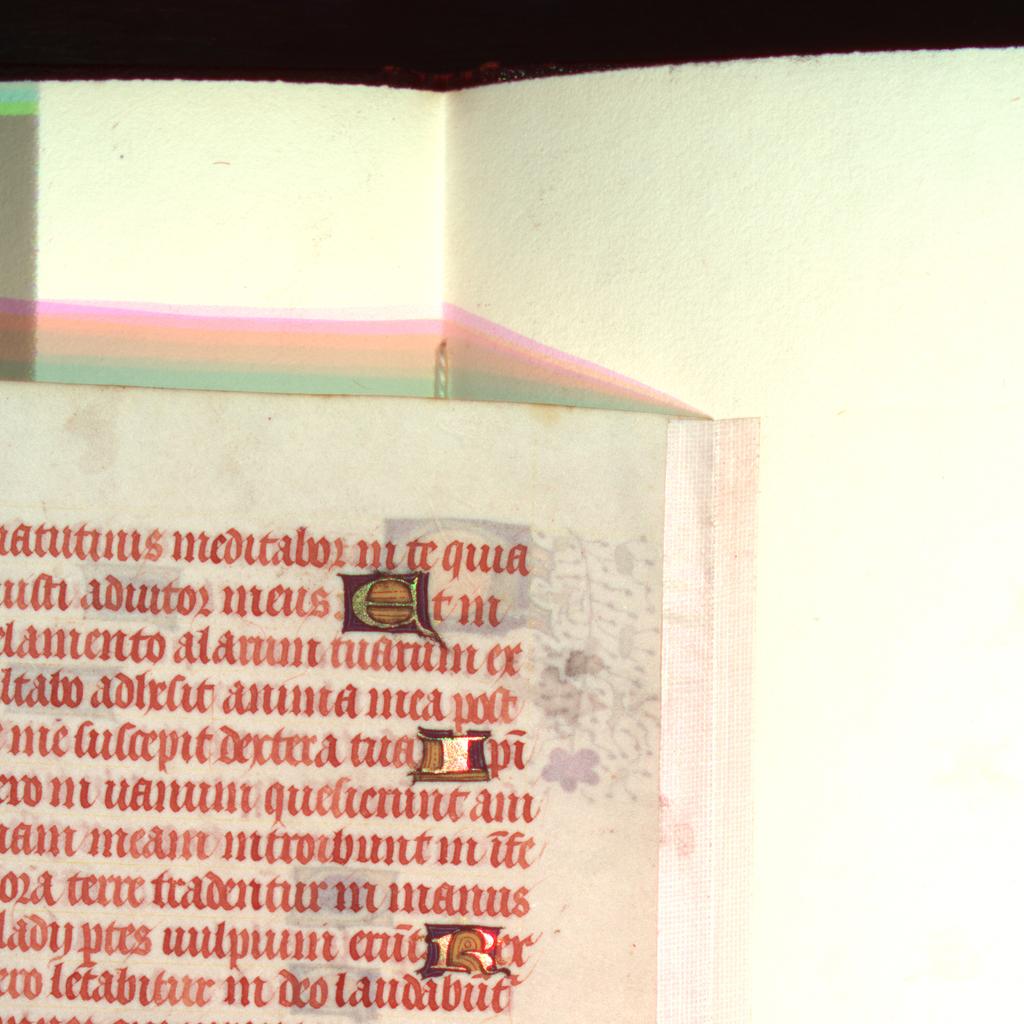 matutinis meditabor in te quia
iusti adiutor meus. Et in
elamento alarum tuarum ex
ultabo adhesit anima mea post
te me suscepit dextera tua Ipi
ero in uanum quesierunt ani
mam meam introibunt in īfe
iora terre tradentur in manus
gladij ptes uulpium erūt Rex
uero letabitur in deo laudabūt